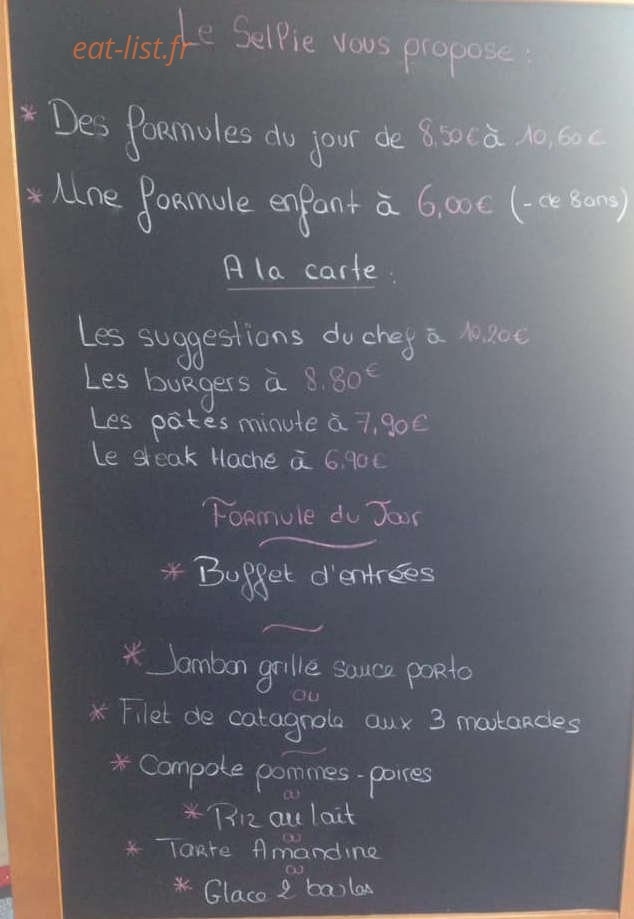 eat-list.fr
Le Selfie vous propose :
* Des formules du jour de 8,50€ à 10,60€
* Une formule enfant à 6,00€ (- de 8 ans)
A la carte :
Les suggestions du chef à 10,20€
Les burgers à 8.80€
Les pâtes minute à 7,90€
Le steak Haché à 6.90€
Formule du Jour
* Buffet d'entrées
* Jambon grillé sauce porto
ou
* Filet de catagnole aux 3 moutardes
* Compote pommes-poires
ou
* Riz au lait
ou
* Tarte Amandine
ou
* Glace 2 boules